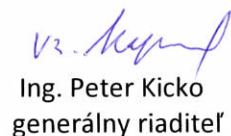 Ing. Peter Kicko
generálny riaditeľ